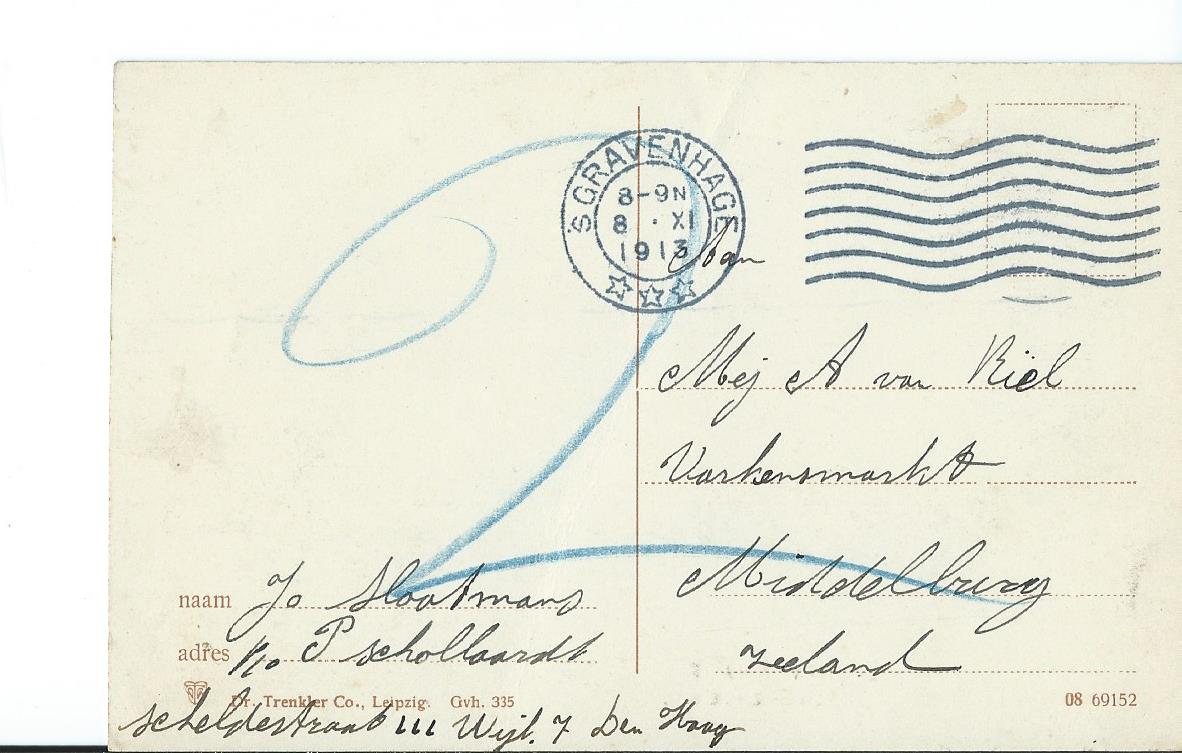 'SGRAVENHAGE
8-9N
8 · XI
1913
Aan
Mej A van Riël
Varkensmarkt
Middelburg
Zeeland
2
naam Jo Slootmans
adres p/o P Schollaardt
Dr. Trenkler Co., Leipzig. Gvh. 335
08 69152
Scheldestraat 111 Wijk 7 Den Haag